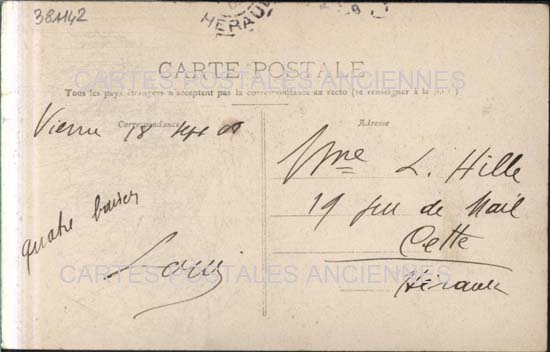 38442
HERAUL
CARTE POSTALE
CARTES POSTALES ANCIENNES
Tous les pays étrangers n'acceptent pas la correspondance au recto (se renseigner à la poste)
Correspondance
Vienne 18 sept 08
quatre baisers
Louis
Adresse
Mme L. Hille
19 de Mail
Cette
Hérault
CARTES POSTALES ANCIENNES